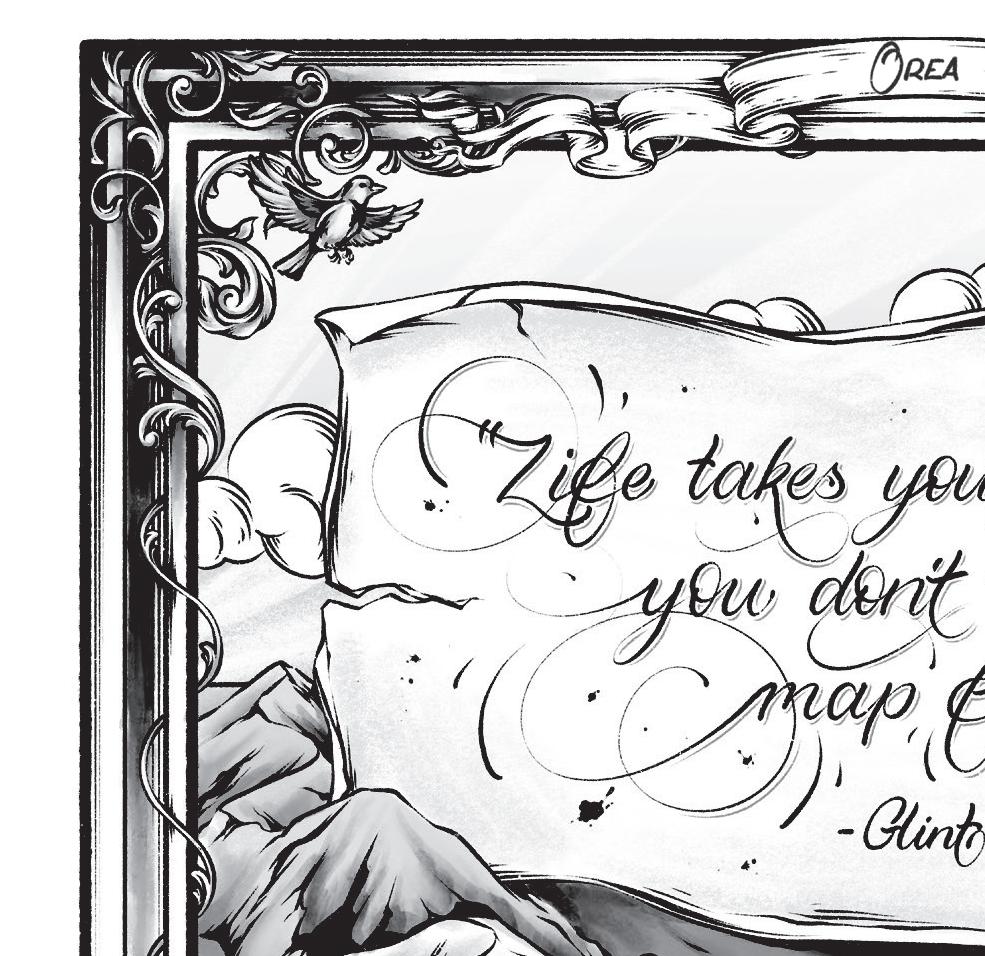 OREA
"Life takes you
you don't
map
-Glint